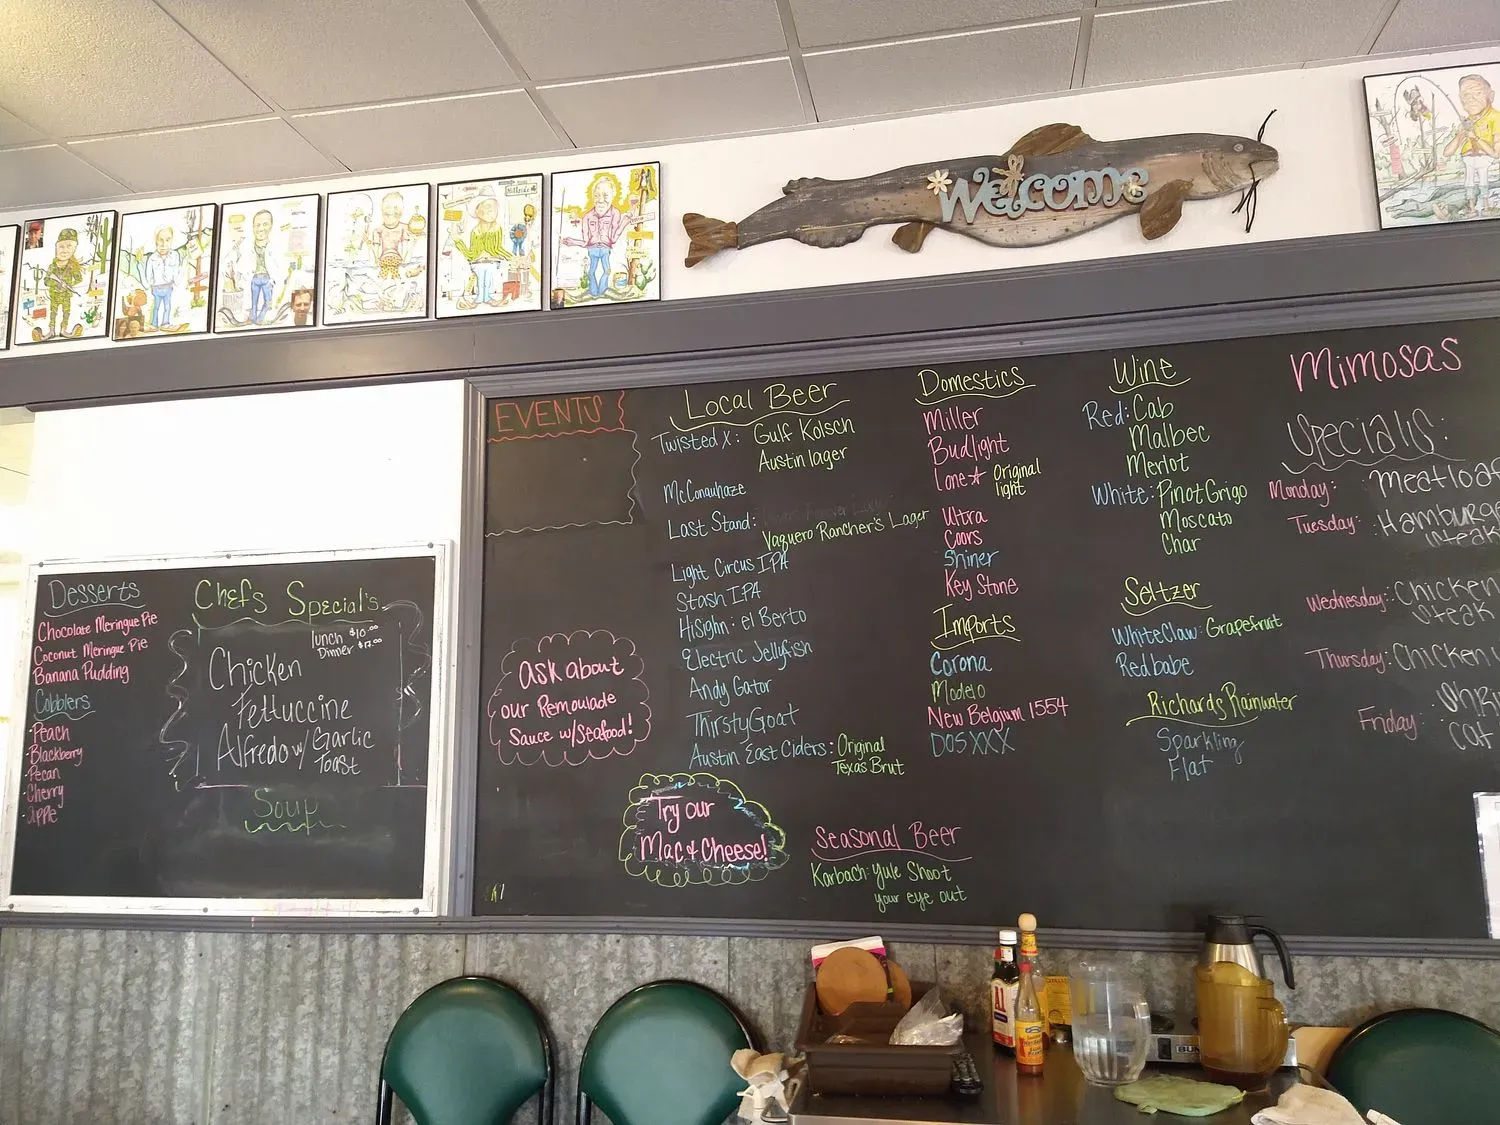 Welcome
Desserts
Chocolate Meringue Pie
Coconut Meringue Pie
Banana Pudding
Cobblers
-Peach
-Blackberry
-Pecan
-Cherry
-apple
Chefs Special's
lunch $10.00
Dinner $17.00
Chicken
Fettuccine
Alfredo w/ Garlic
Toast
Soup
EVENTS
Ask about
our Remoulade
Sauce w/Seafood!
Try our
Mac & Cheese!
Local Beer
Twisted X: Gulf Kolsch
Austin lager
McConauhaze
Last Stand:
Vaquero Rancher's Lager
Light Circus IPA
Stash IPA
HiSighn: el Berto
Electric Jellyfish
Andy Gator
Thirsty Goat
Austin East Ciders: Original
Texas Brut
Seasonal Beer
Karbach: Yule Shoot
your eye out
Domestics
Miller
Budlight
Lone★ Original
light
Ultra
Coors
Shiner
Key Stone
Imports
Corona
Modelo
New Belgium 1554
DOS XXX
Wine
Red: Cab
Malbec
Merlot
White: Pinot Grigo
Moscato
Char
Seltzer
WhiteClaw: Grapefruit
Redbabe
Richards Rainwater
Sparkling
Flat
Mimosas
Specials:
Monday: Meatloaf
Tuesday: Hamburge
Steak
Wednesday: Chicken
Steak
Thursday: Chicken
Friday
Cat
A1
BUN